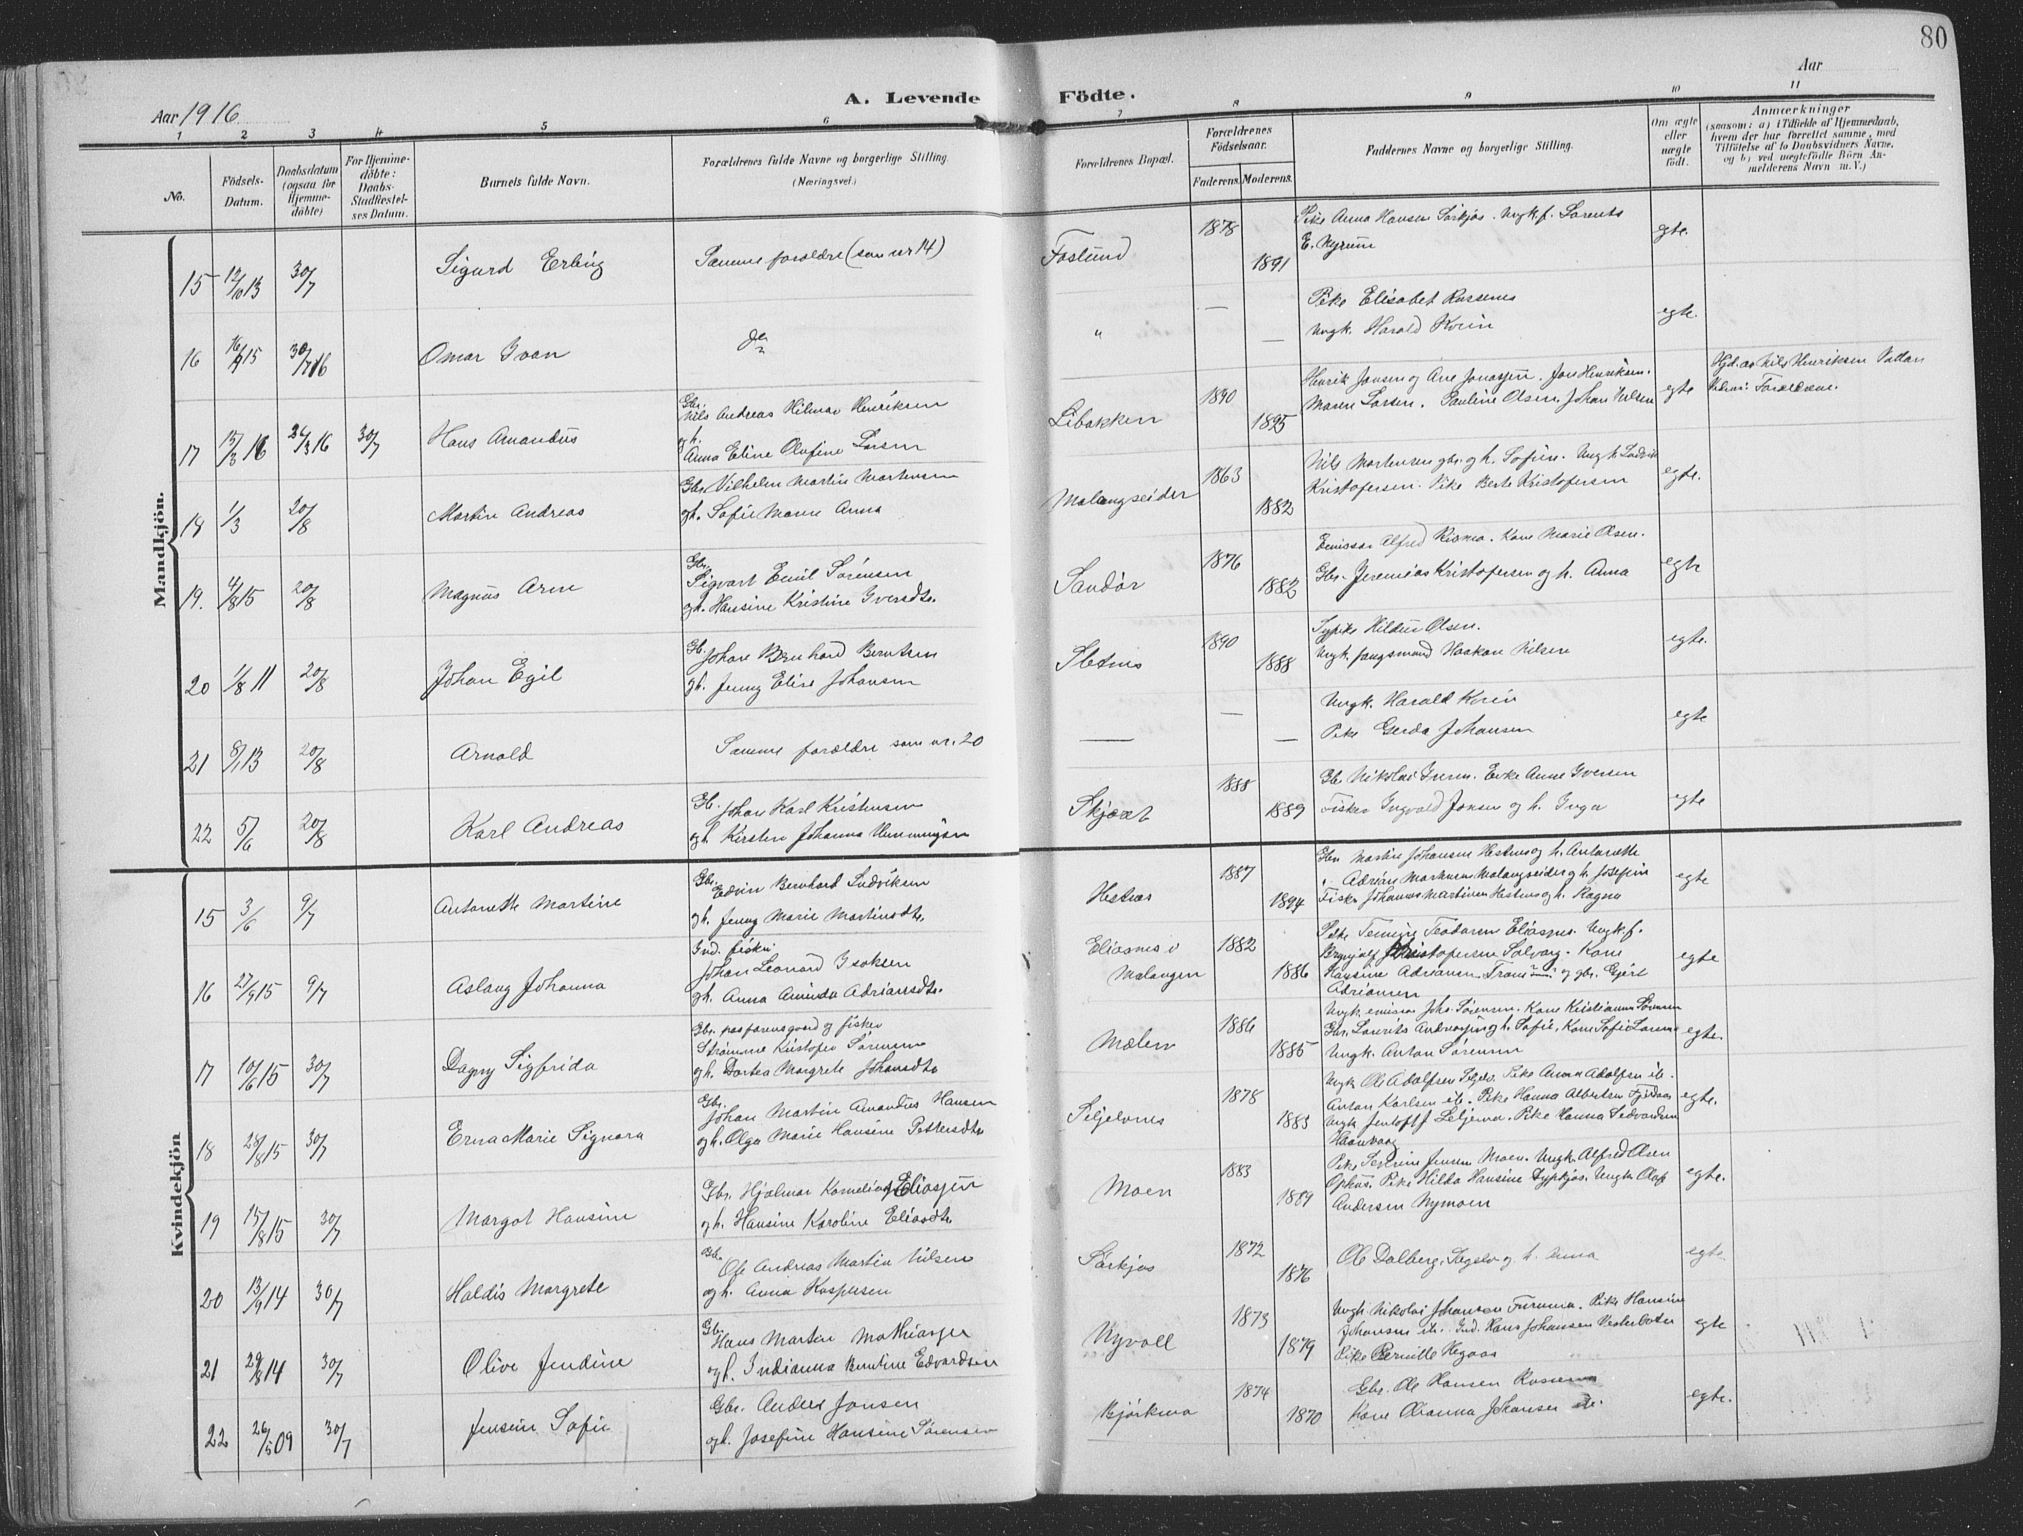 80
Aar 1916
A. Levende Födte.
Aar
1 2 3 4 5 6 7 8 9 10 11
No.
Födsels-Datum.
Daabsdatum (ogsaa for Hjemmedöbte)
For Hjemmedöbte: Daabs-Stadfæstelses Datum.
Barnets fulde Navn.
Forældrenes fulde Navne og borgerlige Stilling.
(Næringsvei.)
Forældrenes Bopæl.
Forældrenes Födselsaar.
Faderens. Moderens.
Faddernes Navne og borgerlige Stilling.
Om ægte eller uægte födt.
Anmærkninger
(saasom: a) i Tilfælde af Hjemmedaab, hvem der har forrettet samme, med Tilföielse af to Daabsvidners Navne, og b) ved uægtefödte Börn Anmelderens Navn m. V.)
Mandkjön.
15 12/10 13 30/7 Sigurd Erling Samme forældre (som nr 14) Foslund 1878 1891 Pike Anna Hansen Sørkjos. Ungk. f. Lorents
E. Nyrum egte.
16 15 30/7 16 Omar Ivan do " — — Pike Elisabet
Ungk. Harald egte.
17 16 16 30/7 Hans Amandus Gbr. Nils Andreas Hilmar Henriksen
og h. Anna Eline Olufine Larsen Libakken 1890 1895 Henrik Jensen og Ane Jonassen. Jon Henriksen.
Maren Larsen. Pauline Olsen. Johan Nilsen egte Nils Henriksen
Forældrene.
18 1/3 20/8 Martin Andreas Gbr. Vilhelm Martin Mortensen
og h. Sofie Maren Anna Malangseidet 1863 1882 Nils Mortensen gbr. og h. Sofie. Ungk. Ludvik
Kristofersen. Pike Berte Kristofersen egte.
19. 4/8 15 20/8 Magnus Arne Gbr. Sigvart Emil Sørensen
og h. Hansine Kristine Iversdtr. Sandør 1876 1882 Emissær Alfred. Kone Marie Olsen.
Gbr. Jeremias Kristofersen og h. Anna egte
20 1/8 11 20/8 Johan Egil Gb. Johan Bernhard Berntsen
og h. Jenny Elise Johansen Sletnes 1890 1888 Olsen.
Ungk. Haakon Nilsen egte.
21 8/1 13 20/8 Arnold Samme forældre som nr. 20 — — — Ungk. Harald
Pike Gerda Johansen egte
22 5/6 20/8 Karl Andreas Gb. Johan Karl Kristensen
og h. Kirsten Johanna Henningsen Skjæret 1888 1889 Gbr. Nikolai. Enke Anne Iversen
Fisker Ingvald Jensen og h. Inga egte
Kvindekjön
15 3/6 9/7 Antonette Martine Gbr. Edvin Bernhard Ludviksen
og h. Jenny Marie Martinsdtr. Hestnes 1887 1894 Gbr. Martin Johansen Hestnes og h. Antonette
" Adrian Markusen Malangseidet og h. Josefine
Fisker Johannes Martinsen Hestnes og h. Ragna egte
16 27/9 15 9/7 Aslaug Johanna Ind. fisker Johan Leonard Isaksen
og h. Anna Aminda Adriansdtr. Eliasnes i
Malangen 1882 1886 Pike Teodora Eliasnes. Ungk. f.
Brynjulf Kristofersen Solvang. Kone
Hansine Adriansen Troms og gbr. Gjert
Adriansen egte
17 10/6 15 30/7 Dagny Sigfrida Gbr. og fisker
Strømme Kristofer Sørensen
og h. Dortea Margrete Johansdtr Mælen 1886 1885 Ungk. emissær Johs. Sørensen. Kone Kristianne Sørensen
Gbr. Lorents Andreassen og h. Sofie. Kone Sofie Larsen
Ungk. Anton Sørensen egte.
18 28/8 15 30/7 Erna Marie Signora Gbr. Johan Martin Amandus Hansen
og h. Olga Marie Hansine Pettersdtr Seljelvnes 1878 1883 Ungk Ole Adolfsen. Pike Anna Adolfsen ib.
Anton Karlsen ib. Pike Hanna Albertsen
Ungk Jentoft J. . Pike Hanna Edvardsen egte.
19 15/8 15 30/7 Margot Hansine Gbr. Hjalmar Kornelius Eliassen
og h. Hansine Karoline Eliasdtr Moen 1883 1889 Pike Severine Jensen Moen. Ungk. Alfred Olsen
Ophus. Pike Hilda Hansine. Ungk. Olaf
Andersen Nymoen egte.
20 13/9 14 30/7 Haldis Margrete Gbr. Ole Andreas Martin Nilsen
og h. Anna Kaspersen Sørkjos 1872 1876 Ole Dalberg, og h. Anna egte.
21 29/8 14 30/7 Olive Jendine Gbr. Hans Martin Mathiassen
og h. Indianna Berntine Edvardsen Nyvoll 1873 1879 Ungk. Nikolai Johansen Furumo. Pike Hansine
Johansen ib. Ind. Hans Johansen
Pike Pernille egte
22 26/5 09 30/7 Jensine Sofie Gbr. Anders Jensen
og h. Josefine Hansine Sørensen Bjørkmo 1874 1870 Gbr. Ole Hansen
Kone Oleanna Johansen do. egte.